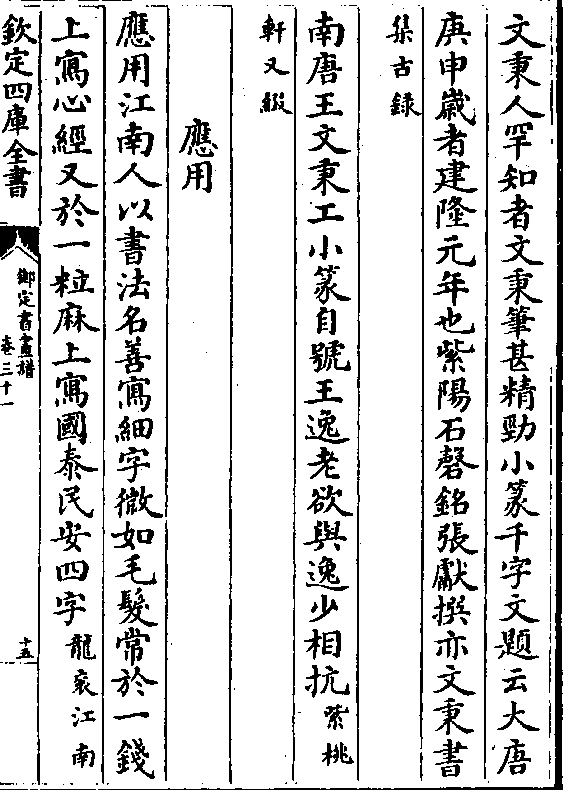 文秉人罕知者文秉筆甚精勁小篆千字文題云大唐
庚申歲者建隆元年也紫陽石磬銘張獻撰亦文秉書
集古錄
南唐王文秉工小篆自號王逸老欲與逸少相抗紫桃
軒又綴
應用
應用江南人以書法名善寫細字微如毛髮常於一錢
上寫心經又於一粒麻上寫國泰民安四字龍袞江南
欽定四庫全書
御定書畫譜
卷三十一
十五